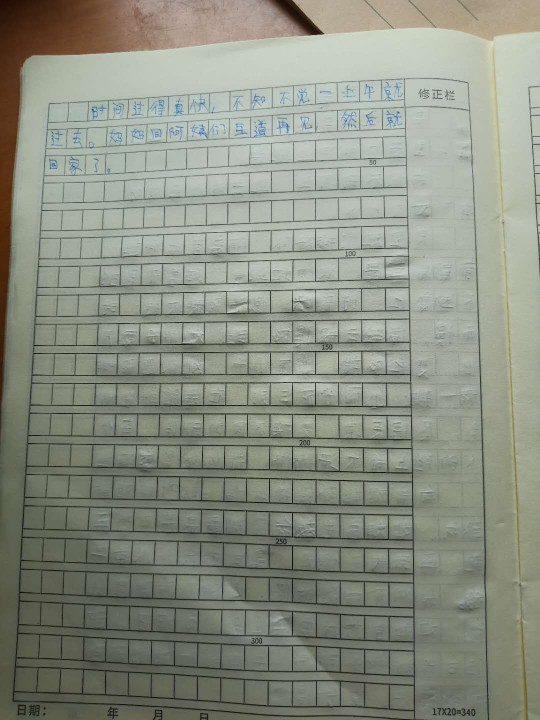 时间过得真快，不知不觉一上午就
修正栏
过去。妈妈回阿姨们互道再见，然后就
回家了。
50
100
150
200
250
300
日期： 年 月 日
17X20=340